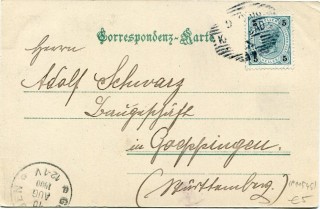 Correspondenz-Karte
5 5
Herrn
Adolf Schwarz
Baugeschäft
in Goeppingen
(Württemberg.)
10
AUG
12-1V